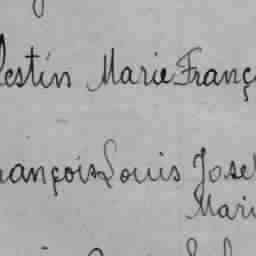 lestin Marie Franç
rançois Louis Jose
Mari